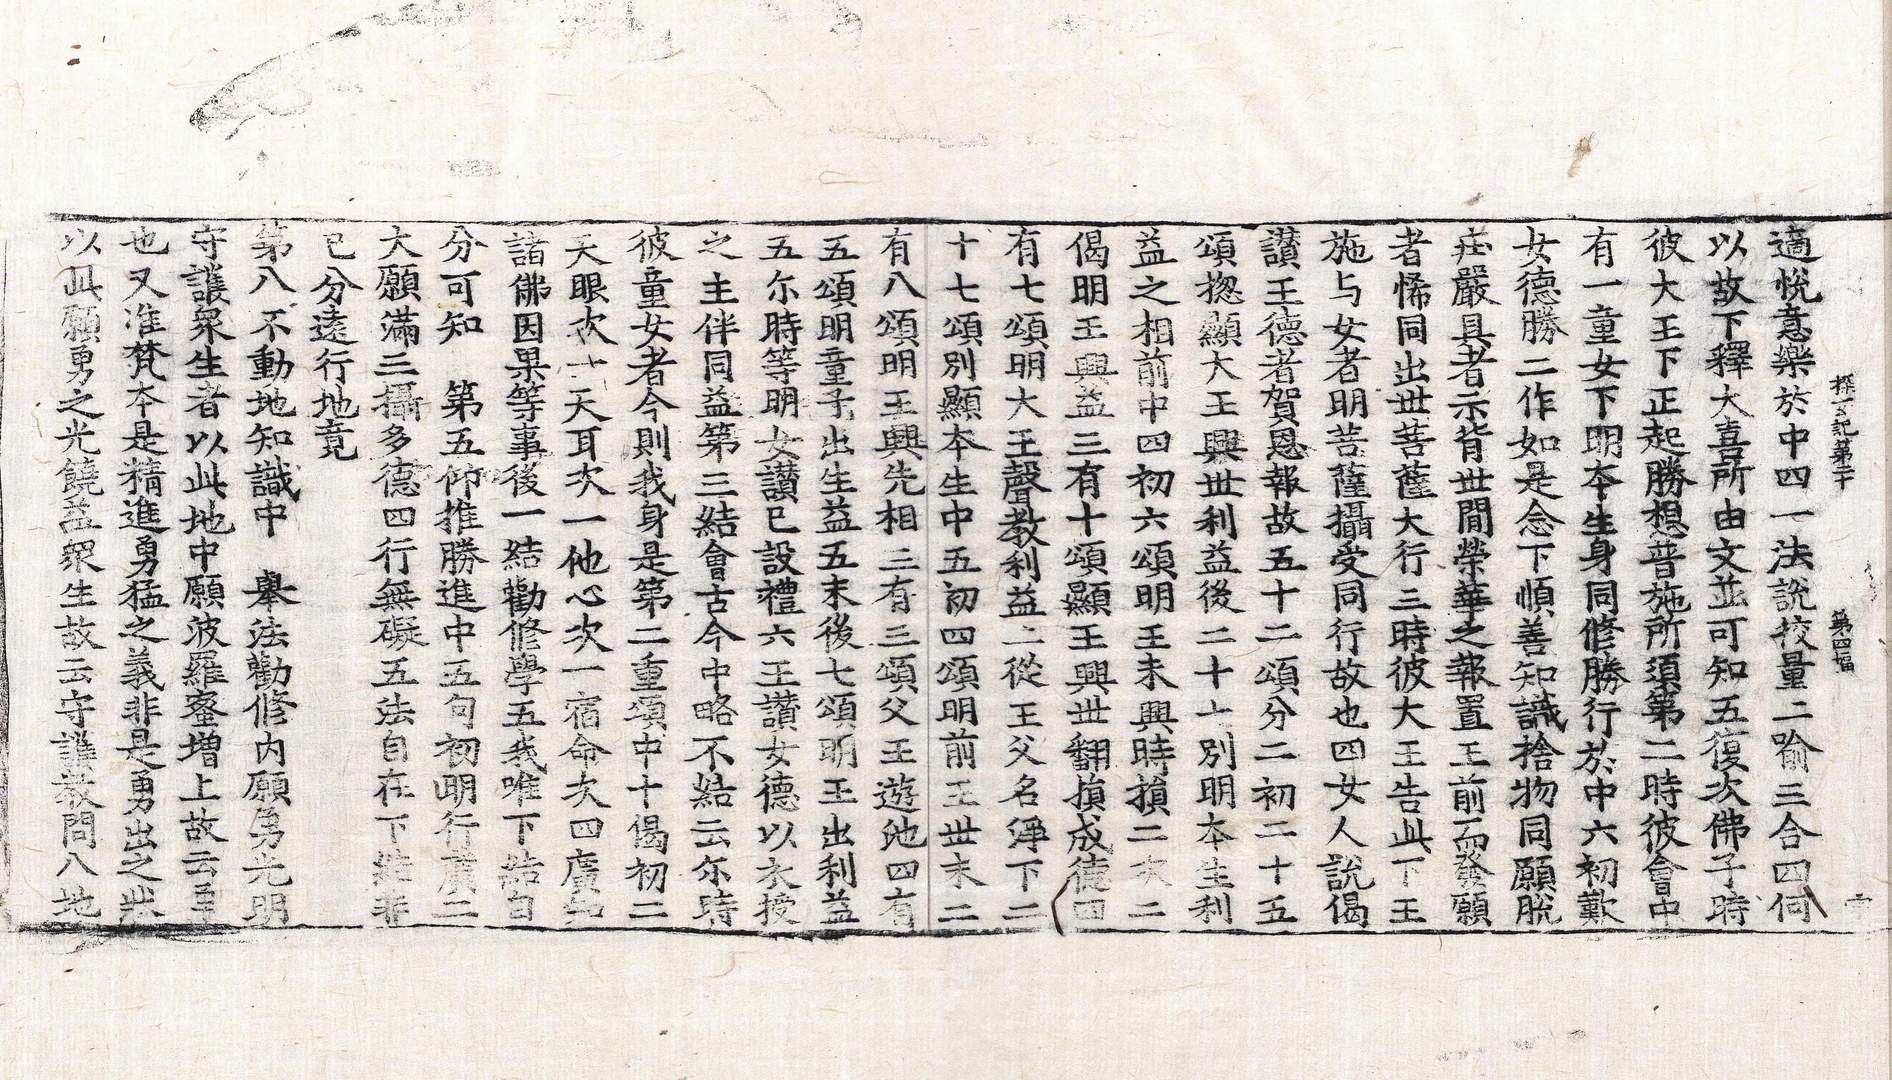 探玄記第二十　第四幅　二
適悅意樂於中四一法說挍量二喻三合四何
以故下釋大喜所由文並可知五復次佛子時
彼大王下正起勝想普施所須第二時彼會中
有一童女下明本生身同修勝行於中六初歎
女德勝二作如是念下順善知識捨物同願脫
莊嚴具者示背世間榮華之報置王前而發願
者悕同出世菩薩大行三時彼大王告此下王
施与女者明菩薩攝受同行故也四女人說偈
讃王德者賀恩報故五十二頌分二初二十五
頌揔顯大王興世利益後二十七別明本生利
益之相前中四初六頌明王未興時損二次二
偈明王興益三有十頌顯王興世翻損成德四
有七頌明大王聲教利益二從王父名淨下二
十七頌別顯本生中五初四頌明前王世末二
有八頌明王興先相三有三頌父王遊池四有
五頌明童子出生益五末後七頌明王出利益
五尒時等明女讃已設禮六王讃女德以衣授
之主伴同益第三結會古今中略不結云尒時
彼童女者今則我身是第二重頌中十偈初二
天眼次一天耳次一他心次一宿命次四廣知
諸佛因果等事後一結勸修學五我唯下結自
分可知　第五仰推勝進中五句初明行廣二
大願滿三攝多德四行無礙五法自在下結非
已分遠行地竟
第八不動地知識中　舉法勸修內願勇光明
守護衆生者以此地中願波羅蜜增上故云勇
也又准梵本是精進勇猛之義非是勇出之出
以此願勇之光饒益衆生故云守護故問八地